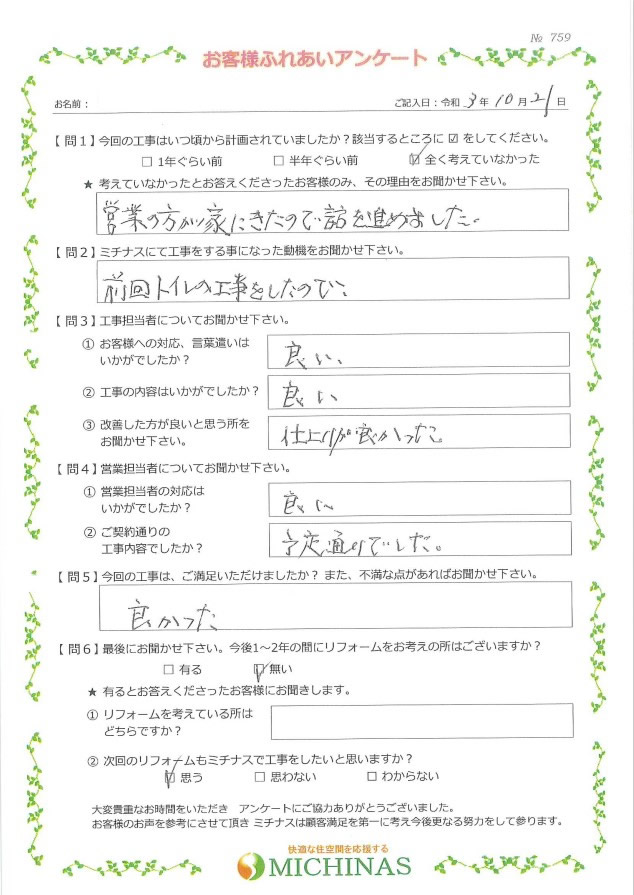 № 759
お客様ふれあいアンケート
お名前：
ご記入日：令和 3 年 10 月 21 日
【問１】今回の工事はいつ頃から計画されていましたか？該当するところに ☑ をしてください。
□ 1年ぐらい前 □ 半年ぐらい前 ☑ 全く考えていなかった
★ 考えていなかったとお答えくださったお客様のみ、その理由をお聞かせ下さい。
営業の方が家にきたので話を進めました。
【問２】ミチナスにて工事をする事になった動機をお聞かせ下さい。
前回トイレの工事をしたので、
【問３】工事担当者についてお聞かせ下さい。
① お客様への対応、言葉遣いは
いかがでしたか？
良い、
② 工事の内容はいかがでしたか？
良い
③ 改善した方が良いと思う所を
お聞かせ下さい。
仕上りが良かった。
【問４】営業担当者についてお聞かせ下さい。
① 営業担当者の対応は
いかがでしたか？
良い
② ご契約通りの
工事内容でしたか？
予定通りでした。
【問５】今回の工事は、ご満足いただけましたか？ また、不満な点があればお聞かせ下さい。
良かった
【問６】最後にお聞かせ下さい。今後1～2年の間にリフォームをお考えの所はございますか？
□ 有る ☑ 無い
★ 有るとお答えくださったお客様にお聞きします。
① リフォームを考えている所は
どちらですか？
② 次回のリフォームもミチナスで工事をしたいと思いますか？
☑ 思う □ 思わない □ わからない
大変貴重なお時間をいただき　アンケートにご協力ありがとうございました。
お客様のお声を参考にさせて頂き ミチナスは顧客満足を第一に考え今後更なる努力をして参ります。
快適な住空間を応援する
MICHINAS